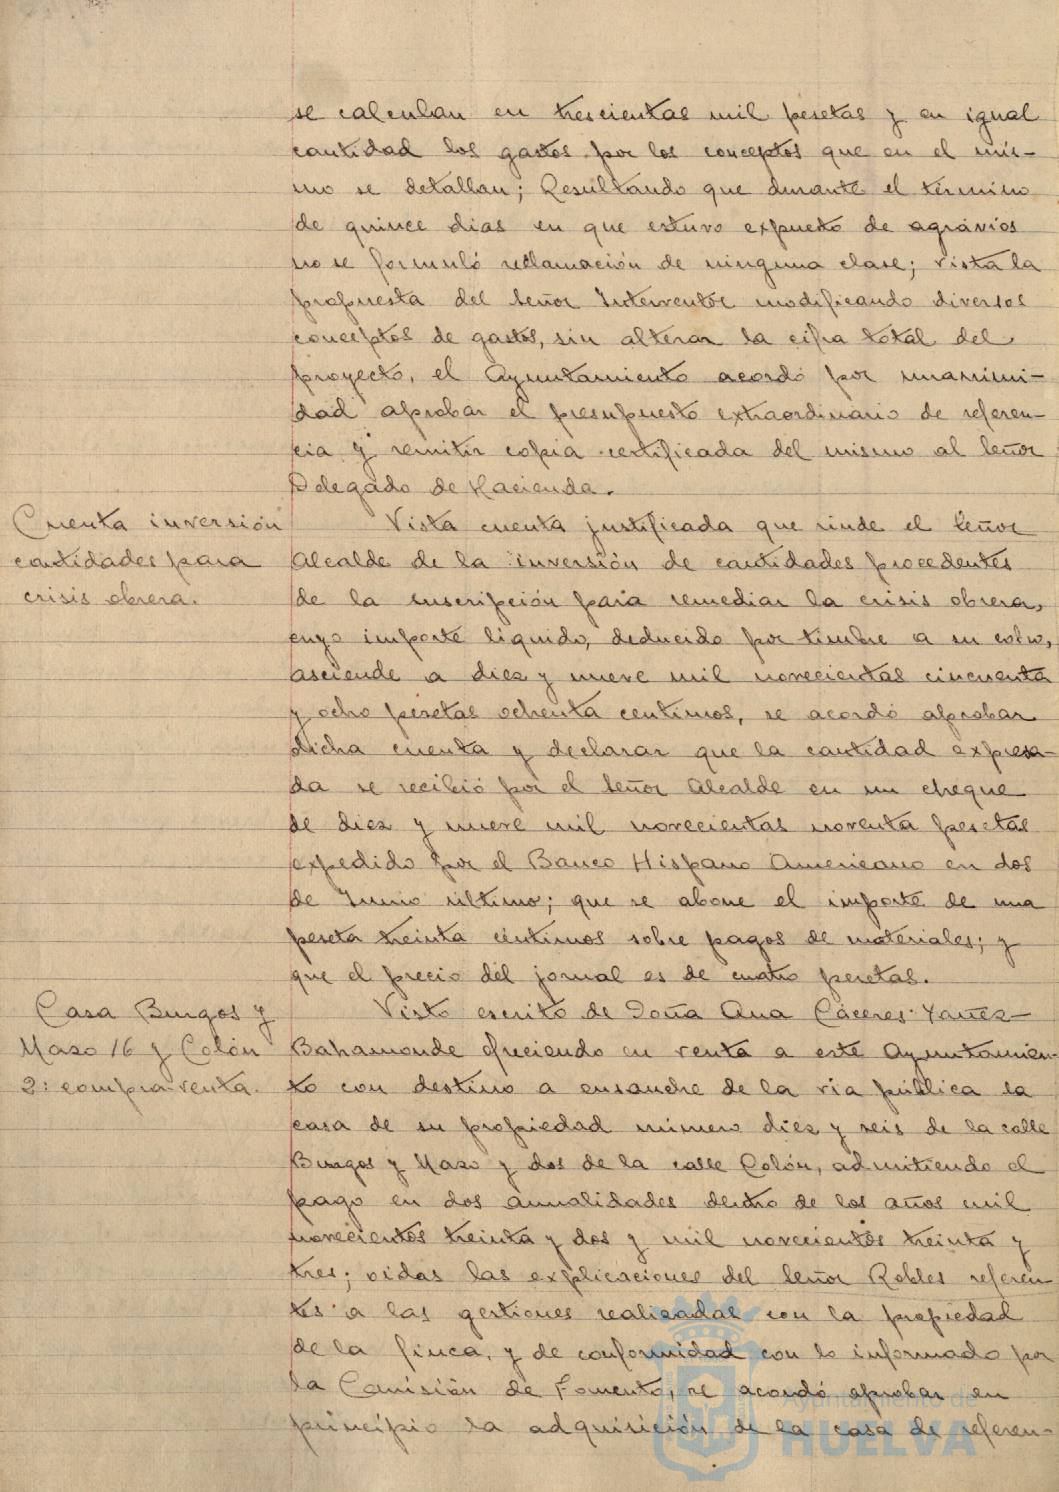 se calculan en trescientas mil pesetas y en igual
cantidad los gastos por los conceptos que en el mis-
mo se detallan; Resultando que durante el término
de quince dias en que estuvo expuesto de agravios
no se formuló reclamación de ninguna clase; vista la
propuesta del Señor Interventor modificando diversos
conceptos de gastos, sin alterar la cifra total del
proyecto, el Ayuntamiento acordó por unanimi-
dad aprobar el presupuesto extraordinario de referen-
cia y remitir copia certificada del mismo al Señor
Delegado de Hacienda.
Cuenta inversión
cantidades para
crisis obrera.
Vista cuenta justificada que rinde el Señor
Alcalde de la inversión de cantidades procedentes
de la suscripción para remediar la crisis obrera,
cuyo importe líquido, deducido por timbre a su cobro,
asciende a diez y nueve mil novecientas cincuenta
y ocho pesetas ochenta centimos, se acordó aprobar
dicha cuenta y declarar que la cantidad expresa-
da se recibió por el Señor Alcalde en un cheque
de diez y nueve mil novecientas noventa pesetas
expedido por el Banco Hispano Americano en dos
de Junio último; que se abone el importe de una
peseta treinta céntimos sobre pagos de materiales; y
que el precio del jornal es de cuatro pesetas.
Casa Burgos y
Mazo 16 y Colón
2: compra-venta.
Visto escrito de Doña Ana Cáceres Yañez-
Bahamonde ofreciendo en venta a este Ayuntamien-
to con destino a ensanche de la via pública la
casa de su propiedad número diez y seis de la calle
Burgos y Mazo y dos de la calle Colón, admitiendo el
pago en dos anualidades dentro de los años mil
novecientos treinta y dos y mil novecientos treinta y
tres; oidas las explicaciones del Señor Robles referen-
tes a las gestiones realizadas con la propiedad
de la finca, y de conformidad con lo informado por
la Comisión de Fomento, se acordó aprobar en
principio la adquisición de la casa de referen-
Ayuntamiento de
HUELVA